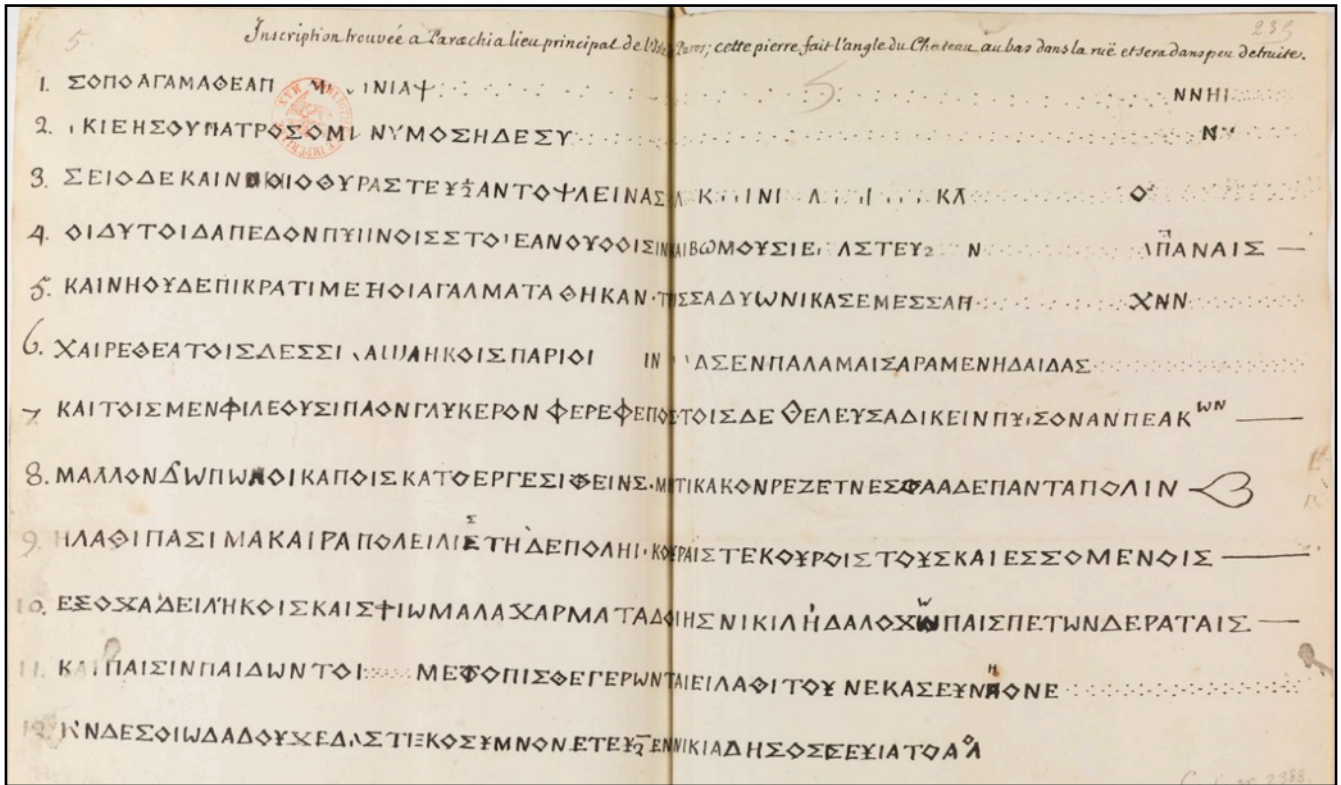 5. Inscription trouvée a Paræchia lieu principal de l'Isle Paros; cette pierre fait l'angle du Chateau au bas dans la ruë et sera dans peu detruite. 239
1. ΣΟΠΟΑΓΑΜΑΘΕΑΠ ΝΙΑΨ ΝΝΗΙ
2. ΚΙΕΗΣΟΥΠΑΤΡΟΣΟΜΙ ΝΥΜΟΣΗΔΕΣΥ Ν
3. ΣΕΙΟΔΕΚΑΙΝ ΙΟΘΥΡΑΣΤΕΥ ΑΝΤΟΨΛΕΙΝΑΣ Κ ΙΝΙ Λ ΚΛ Ο
4. ΟΙΔΥΤΟΙΔΑΠΕΔΟΝΠΥΙΙΝΟΙΣΣΤΟΙΕΑΝΟΥΘΟΙΣΙΝΚΑΙΒΩΜΟΥΣΙΕ ΛΣΤΕΥ Ν ΠΑΝΑΙΣ
5. ΚΑΙΝΗΟΥΔΕΠΙΚΡΑΤΙΜΕΞΗΟΙΑΓΑΛΜΑΤΑΘΗΚΑΝ·ΤΙΣΣΑΔΥΩΝΙΚΑΣΕΜΕΣΣΑΗ ΧΝΝ
6. ΧΑΙΡΕΘΕΑΤΟΙΣΔΕΣΣΙ ΑΙΗΚΟΙΣΠΑΡΙΟΙ ΙΝ ΑΣΕΝΠΑΛΑΜΑΙΣΑΡΑΜΕΝΗΔΑΙΔΑΣ
7. ΚΑΙΤΟΙΣΜΕΝΦΙΛΕΟΥΣΙΠΛΟΝΓΛΥΚΕΡΟΝΦΕΡΕΦΕΠΟΕΤΟΙΣΔΕΘΕΛΕΥΣΑΔΙΚΕΙΝΠΥΙΣΟΝΑΝΠΕΑΚΩΝ
8. ΜΑΛΛΟΝΔΩΠΩΝΟΙΚΑΠΟΙΣΚΑΤΟΕΡΓΕΣΙΦΕΙΝΣ·ΜΗΤΙΚΑΚΟΝΡΕΖΕΤΝΕΣΦΑΑΔΕΠΑΝΤΑΠΟΛΙΝ
9. ΗΛΑΘΙΠΑΣΙΜΑΚΑΙΡΑΠΟΛΕΙΛΙΣΤΗΔΕΠΟΛΗΙ·ΚΟΥΡΑΙΣΤΕΚΟΥΡΟΙΣΤΟΥΣΚΑΙΕΣΣΟΜΕΝΟΙΣ
10. ΕΣΟΧΑΔΕΙΛΗΚΟΙΣΚΑΙΣΦΙΩΜΑΛΑΧΑΡΜΑΤΑΔΟΙΗΣΝΙΚΙΛΗΔΑΛΟΧΩΠΑΙΣΠΕΤΩΝΔΕΡΑΤΑΙΣ
11. ΚΑΙΠΑΙΣΙΝΠΑΙΔΩΝΤΟΙ ΜΕΤΟΠΙΣΘΕΓΕΡΩΝΤΑΙΕΙΛΑΘΙΤΟΥΝΕΚΑΣΕΥΝΗΟΝΕ
12. ΚΝΔΕΣΟΙΩΔΑΔΟΥΧΕΔΛΣΤΙΞΚΟΣΥΜΝΟΝΕΤΕΥΞΕΝΝΙΚΙΑΔΗΣΟΣΣΕΥΙΑΤΟΑΛ